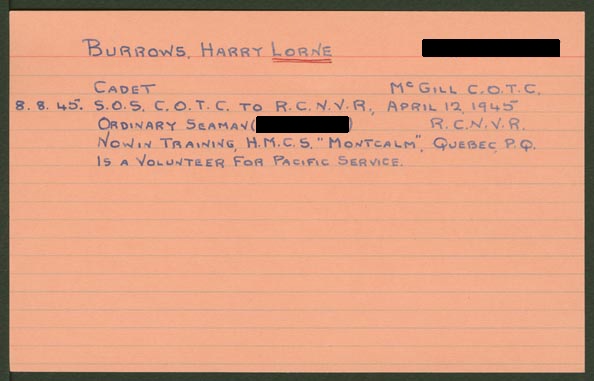 BURROWS, HARRY LORNE
CADET McGILL C.O.T.C.
8.8.45. S.O.S. C.O.T.C. TO R.C.N.V.R., APRIL 12, 1945
ORDINARY SEAMAN ( ) R.C.N.V.R.
NOW IN TRAINING, H.M.C.S. "MONTCALM", QUEBEC, P.Q.
IS A VOLUNTEER FOR PACIFIC SERVICE.